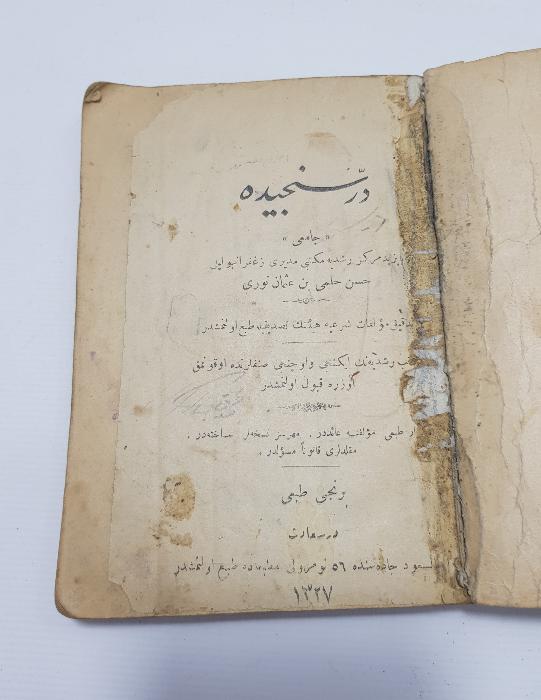 درّ سنجیده
« جامعی »
بایزید مرکز رشدیه مکتبی مدیری زعفرانبولیلی
حسن حلمی بن عثمان نوری
تدقیق مؤلفات شرعیه هیئتنك تصدیقیله طبع اولنمشدر
مکاتب رشدیه‌نك ایکنجی واوچنجی صنفلرنده اوقونمق
اوزره قبول اولنمشدر
طبعی مؤلفنه عائددر . مهرسز نسخه‌لر ساخته‌در .
مقلدلری قانوناً مسؤلدر .
برنجی طبعی
درسعادت
السعود جاده‌سنده ٥٦ نومرولی مطبعه‌ده طبع اولنمشدر
١٣٢٧